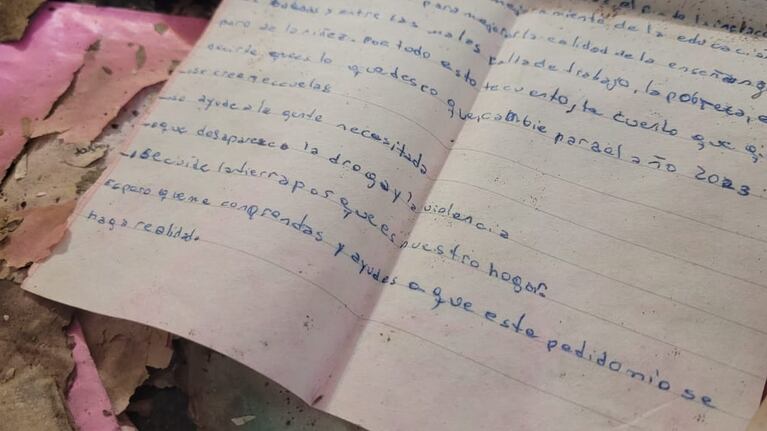 para mejorar la calidad de la enseñanza
y entre las malas falta de trabajo, la pobreza, e
paro de la niñez. Por todo esto te cuento, te cuento que qi
decirte que es lo que deseo que cambie para el año 2023
-se creen escuelas
-se ayude a la gente necesitada
-que desaparesca la droga y la violencia
-se cuide la tierra pos que es nuestro hogar.
espero que me conprendas y ayudes a que este pedido mio se
haga realidad.